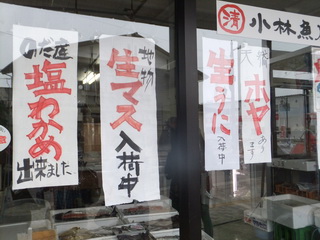 のだ産
塩わかめ
出来ました
地物
生マス
入荷中
生うに
入荷中
大粒
ホヤ
あります
清
小林魚